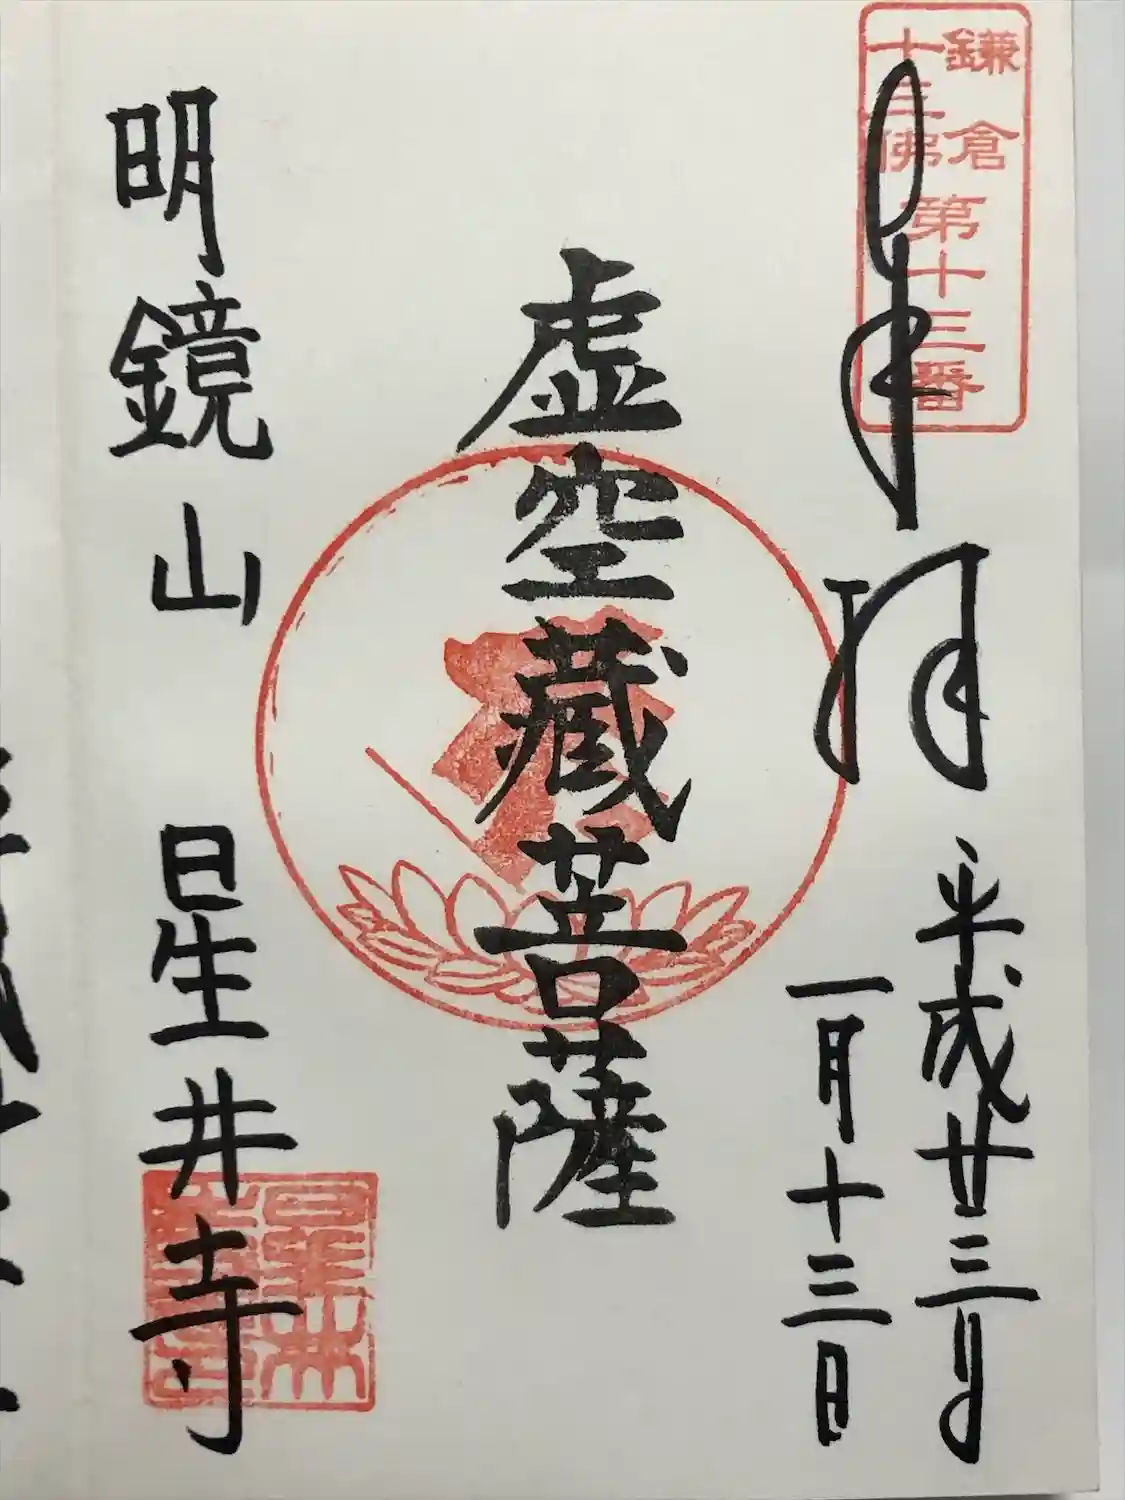 鎌倉
十三佛
第十三番
奉拝
平成廿三年
一月十三日
虚空蔵菩薩
明鏡山
星井寺